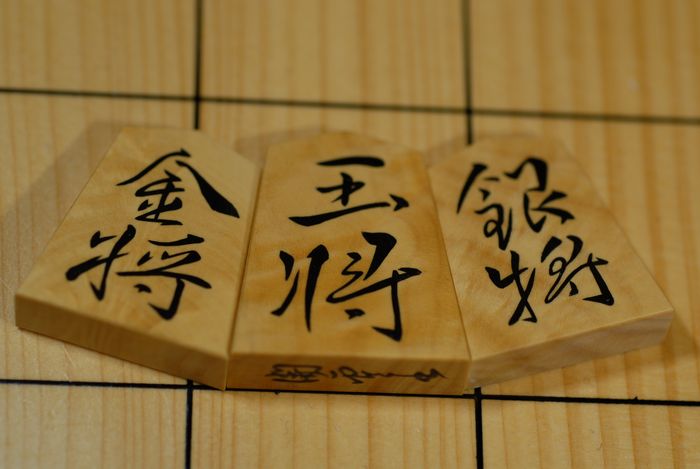 金将
玉将
銀将